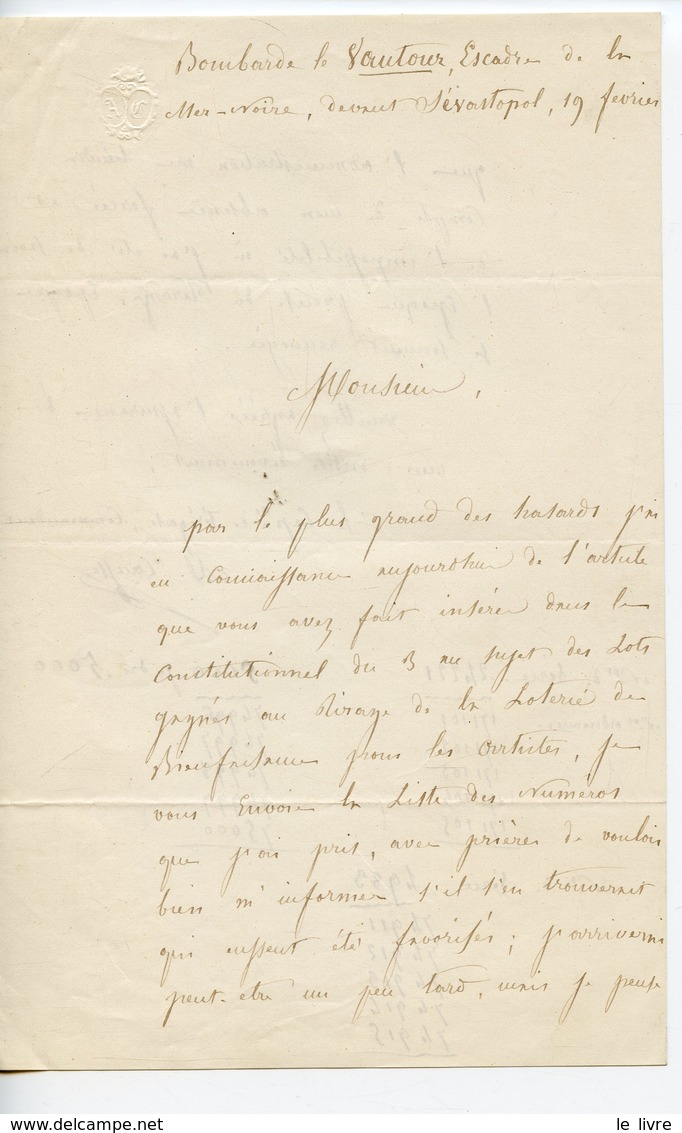 Bombarde le Vautour, Escadre de la
Mer-Noire, devant Sévastopol, 19 fevrier
Monsieur,
par le plus grand des hasards j'ai
eu Connaissance aujourdhui de l'article
que vous avez fait insérer dans le
Constitutionnel du 3 au sujet des Lots
gagnés au Tirage de la Loterie de
Bienfaisance pour les artistes, je
vous Envoie la Liste des Numéros
que j'ai pris, avec prières de vouloir
bien m'informer s'il s'en trouverait
qui eussent été favorisés; j'arriverai
peut-etre un peu tard, mais je pense
le livre
www.delcampe.net